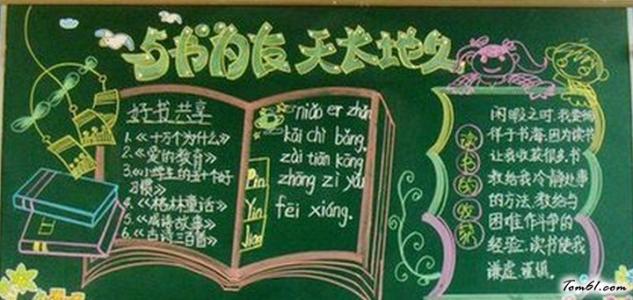 与书为友 天长地久
好书共享
1.《十万个为什么》
2.《爱的教育》
3.《小学生的五十个好
习惯》
4.《格林童话》
5.《成语故事》
6.《古诗三百首》
niǎo er zhǎn
kāi chì bǎng.
zài tiān kōng
zhōng zì yóu
fēi xiáng.
Pin
Yin
Jiao
读书的收获
闲暇之时,我爱徜
徉于书海,因为读书
让我收获很多.书
教给我冷静处事
的方法,教给与
困难作斗争的
经验.读书使我
谦虚、谨慎.
Tom61.com